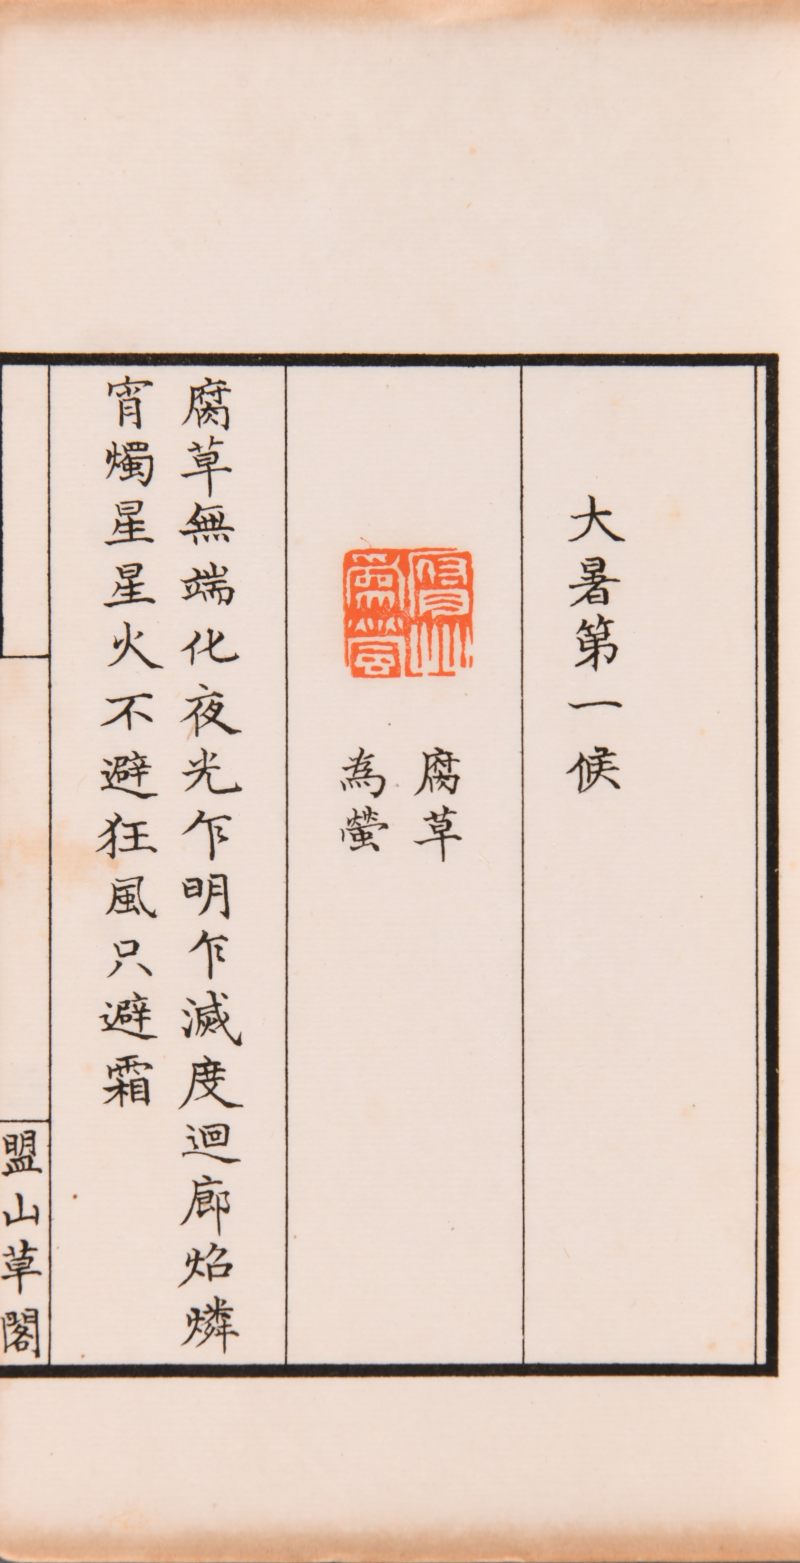 大暑第一候
腐草
為螢
腐草為螢
腐草無端化夜光乍明乍滅度迴廊焰燐
宵燭星星火不避狂風只避霜
盟山草閣